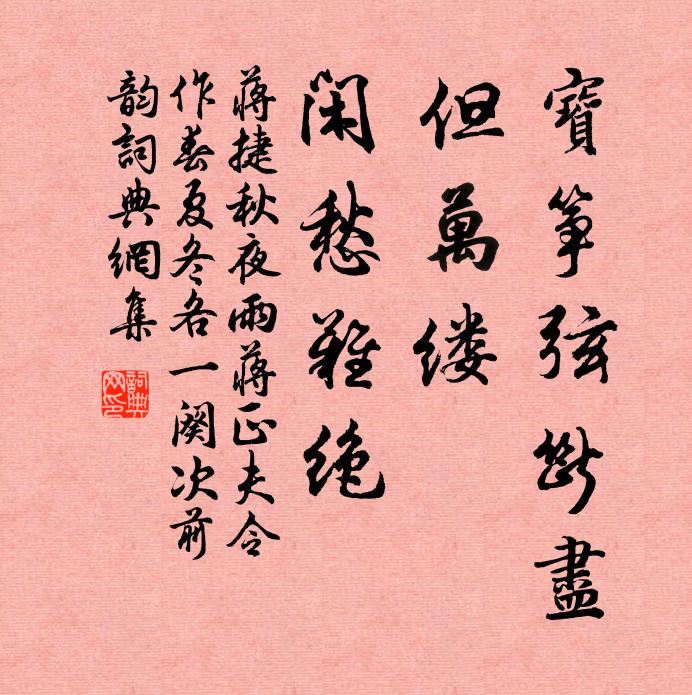 寶筝弦斷盡
但萬缕
闲愁難绝
蔣捷秋夜雨蔣正夫令
作春夏冬各一阕次前
韵詞典網集
詞典网印